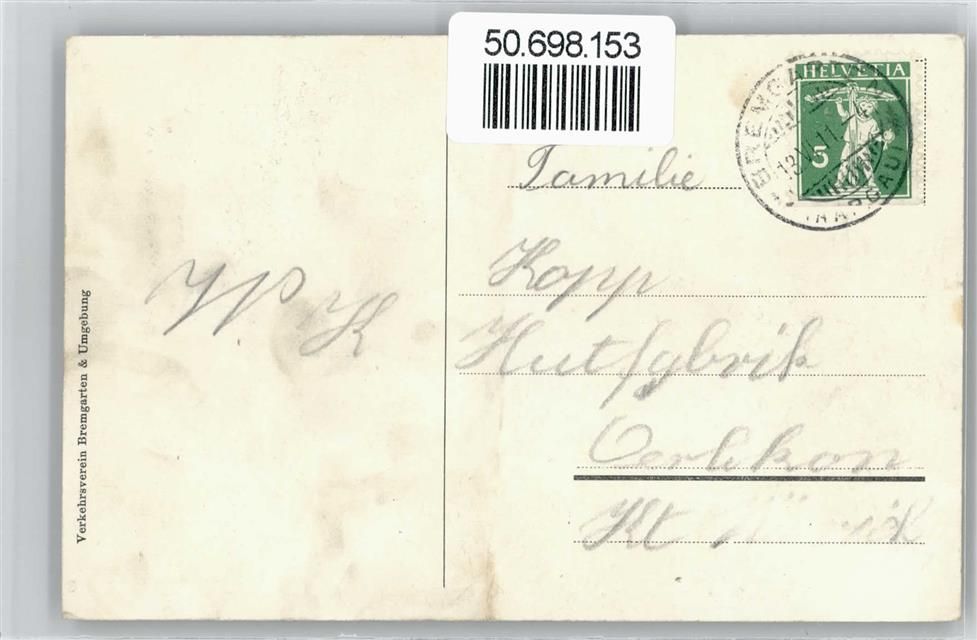 50.698.153
HELVETIA
5
BREMGARTEN
(AARGAU)
Familie
Kopp
Hutfabrik
Oerlikon
Kt
W K
Verkehrsverein Bremgarten & Umgebung